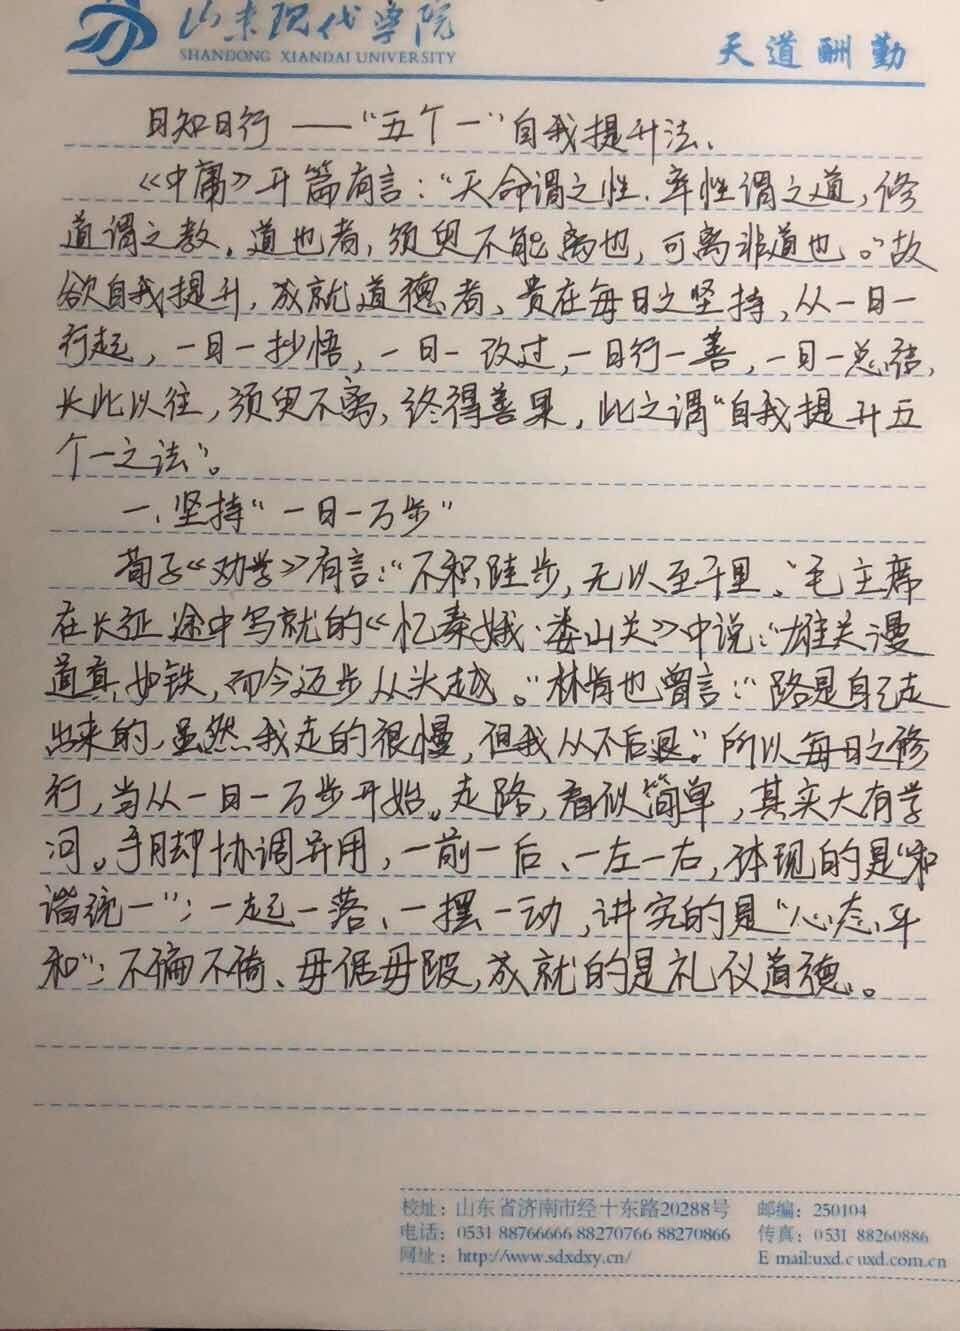 山东现代学院
SHANDONG XIANDAI UNIVERSITY
天道酬勤
日知日行——“五个一”自我提升法、
《中庸》开篇有言：“天命谓之性、率性谓之道，修
道谓之教。道也者，须臾不能离也，可离非道也。”故
欲自我提升，成就道德者，贵在每日之坚持，从一日一
行起，一日一抄悟，一日一改过，一日行一善，一日一总结，
长此以往，须臾不离，终得善果，此之谓“自我提升五
个一之法”。
一、坚持“一日一万步”
荀子《劝学》有言：“不积跬步，无以至千里、”毛主席
在长征途中写就的《忆秦娥·娄山关》中说：“雄关漫
道真如铁，而今迈步从头越。”林肯也曾言：“路是自己走
出来的，虽然我走的很慢，但我从不后退。”所以每日之修
行，当从一日一万步开始。走路，看似简单，其实大有学
问。手脚协调并用，一前一后、一左一右，体现的是“和
谐统一”；一起一落、一摆一动，讲究的是“心态平
和”；不偏不倚、毋倨毋跛，成就的是礼仪道德。
校址：山东省济南市经十东路20288号 邮编：250104
电话：0531 88766666 88270766 88270866 传真：0531 88260886
网址：http://www.sdxdxy.cn/ E mail:uxd.c uxd.com.cn